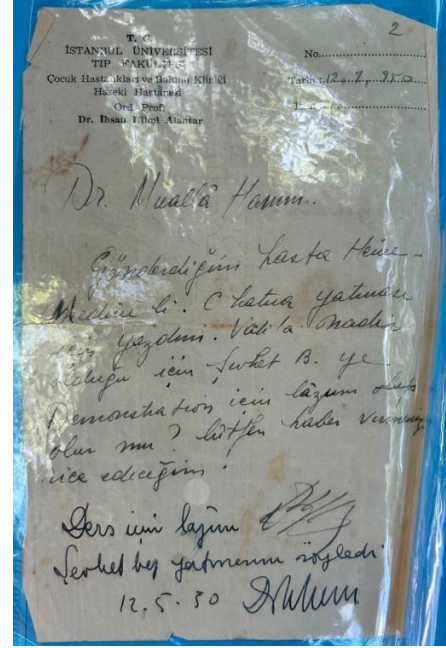 2
T. C.
İSTANBUL ÜNİVERSİTESİ
TIP FAKÜLTESİ
Çocuk Hastalıkları ve Bakımı Kliniği
Haseki Hastanesi
Ord. Prof.
Dr. İhsan Hilmi Alantar
No.
Tarih
Dr. Muallâ Hanım..
Gönderdiğim hasta Heine-
Medine li. C katına yatması
için yazdım. Vak'a nadir
olduğu için Şevket B. ye
Demonstration için lâzım
olur mu? lütfen haber
rica edeceğim.
Ders için lâzım
Şevket bey yatmasını söyledi
12.5.50